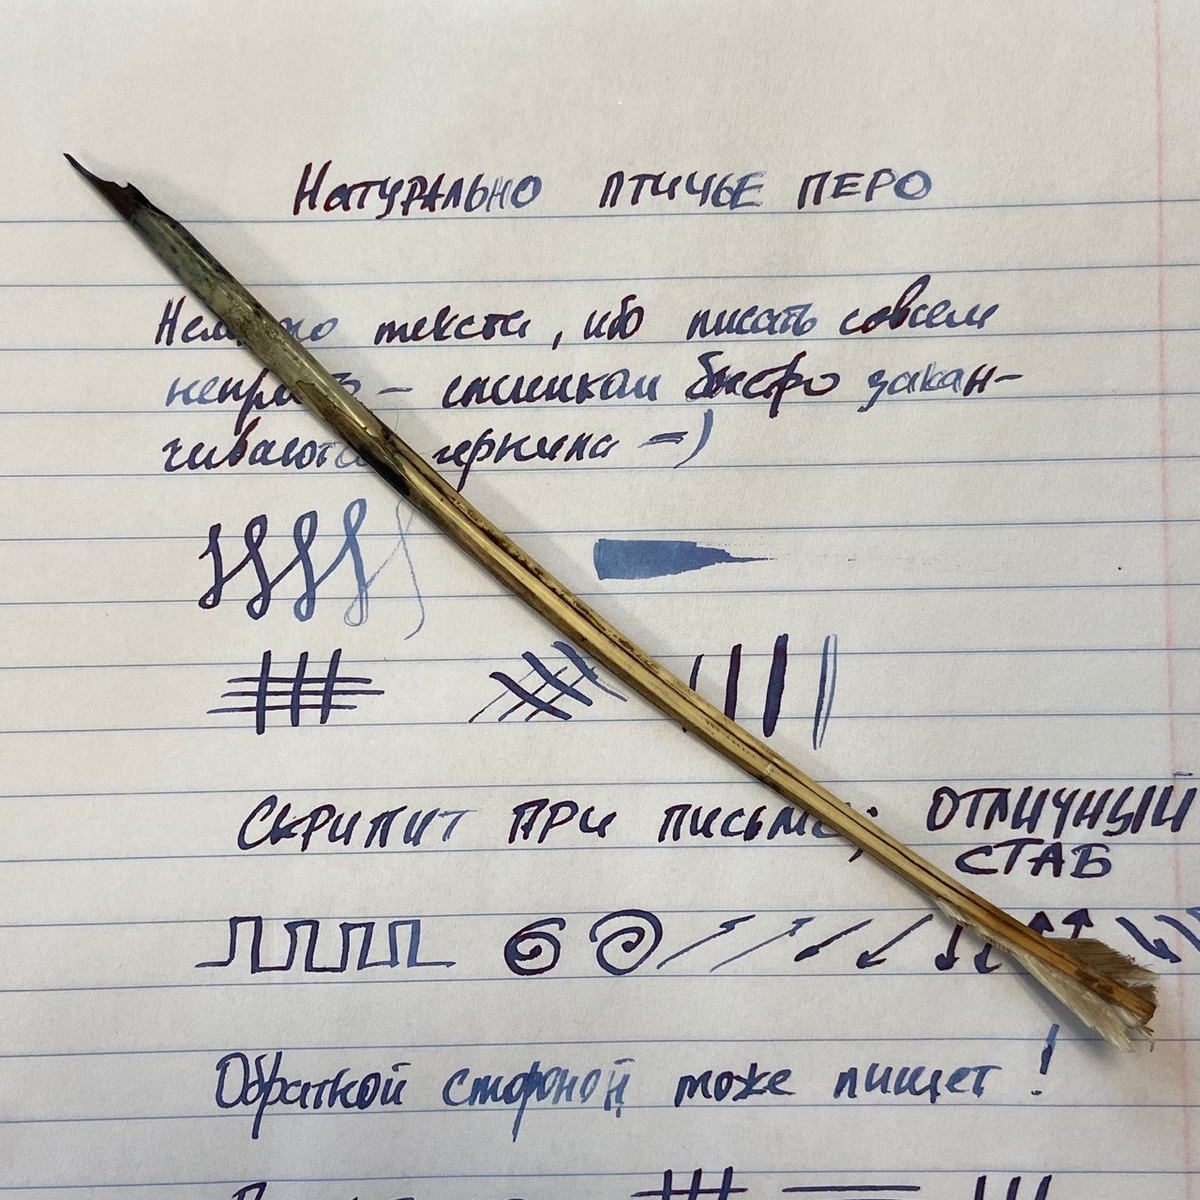 Натурально птичье перо
Немного текста, ибо писать совсем
непросто - слишком быстро закан-
чиваются чернила =)
Скрипит при письме; отличный
стаб
Обратной стороной тоже пишет!